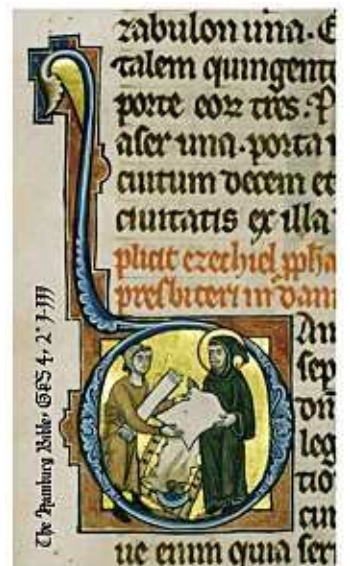 zabulon una. E
talem quingente
porte eorz tres. P
aser una. porta
cuitum decem et
ciuitatis ex illa
plicit ezechiel ppha
presbiteri in dani
An
sep
dni
leg
tio
cun
ue enim quia ser
The Hamburg Bible, GKS 4, 2° I-III